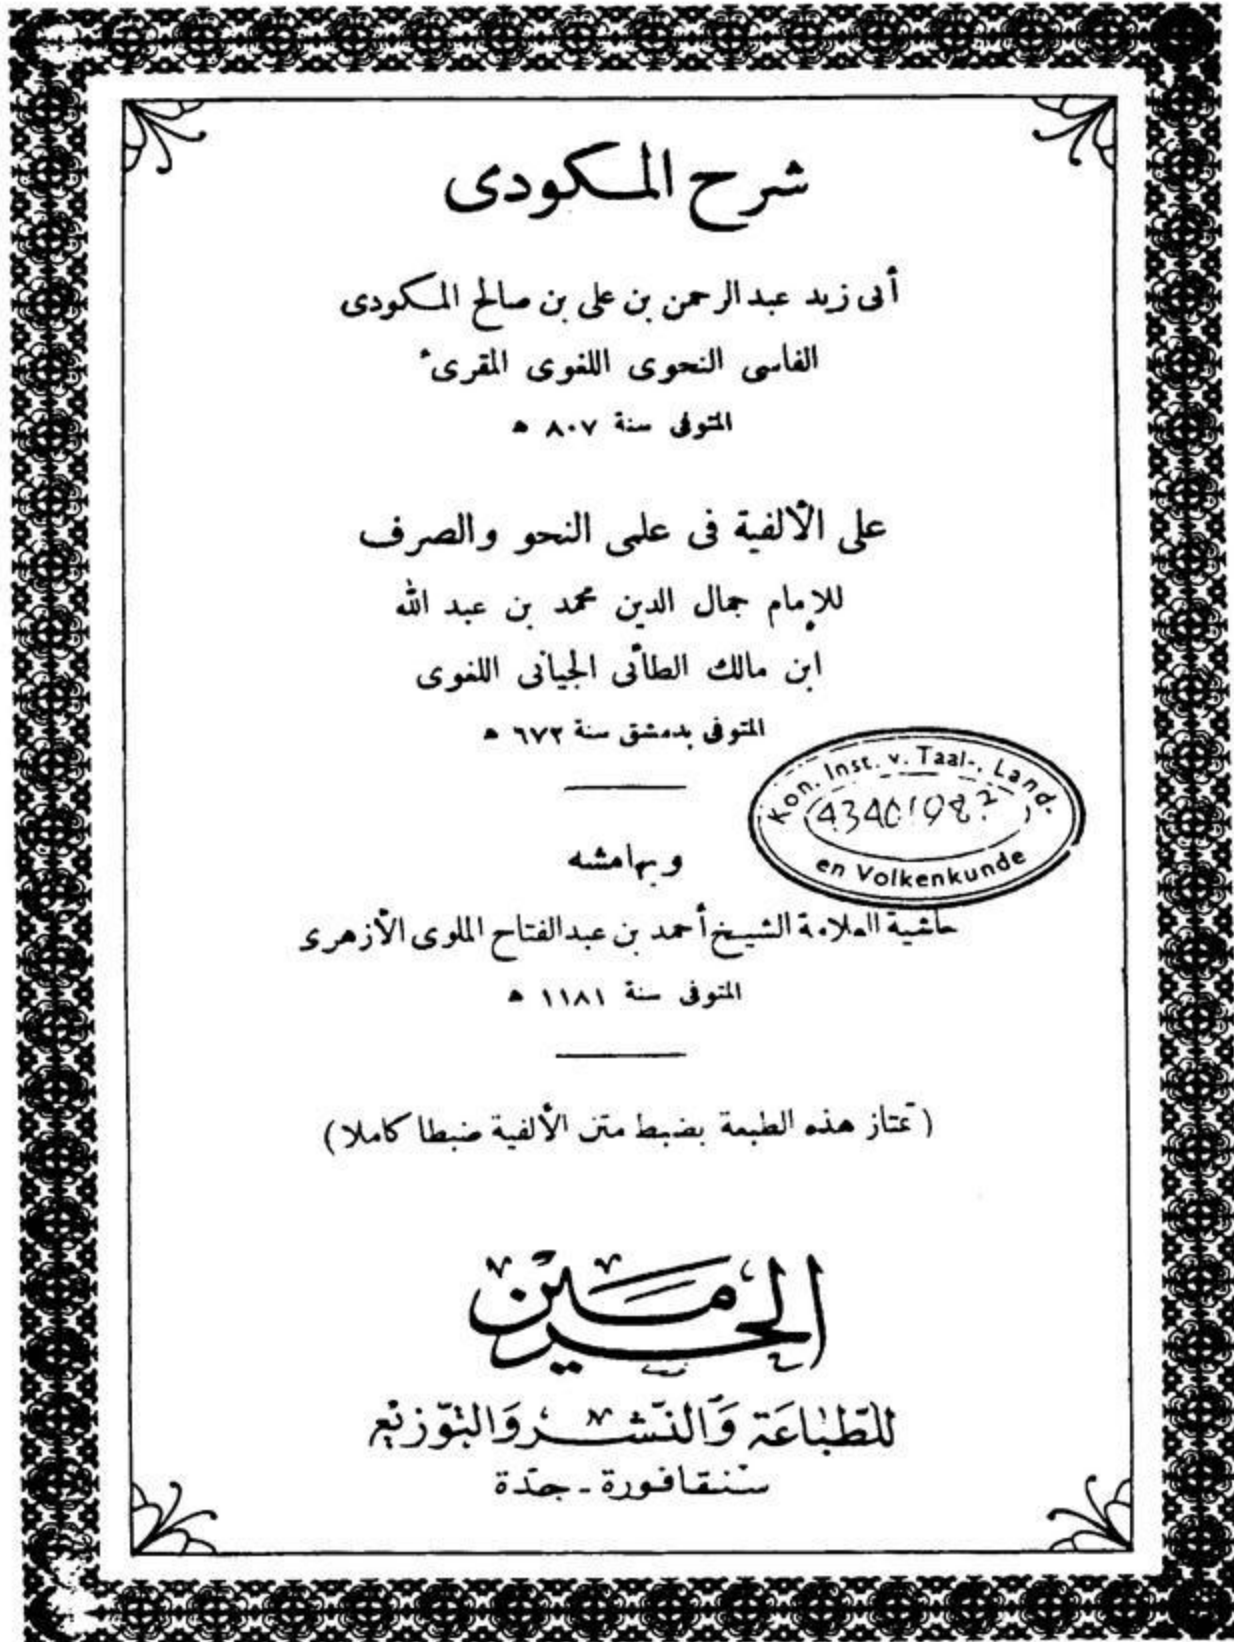 شرح المكودى
أبى زيد عبد الرحمن بن على بن صالح المكودى
الفاسى النحوى اللغوى المقرىء
المتوفى سنة ٨٠٧ ه
على الألفية فى علمى النحو والصرف
للإمام جمال الدين محمد بن عبد الله
ابن مالك الطائى الجيانى اللغوى
المتوفى بدمشق سنة ٦٧٢ ه
Kon. Inst. v. Taal-, Land-
en Volkenkunde
وبهامشه
حاشية العلامة الشيخ أحمد بن عبد الفتاح الملوى الأزهرى
المتوفى سنة ١١٨١ ه
(تمتاز هذه الطبعة بضبط متن الألفية ضبطا كاملا)
الحرمين
للطّباعَة وَالنّشر وَالتّوزيْع
سَنقافورة - جدّة